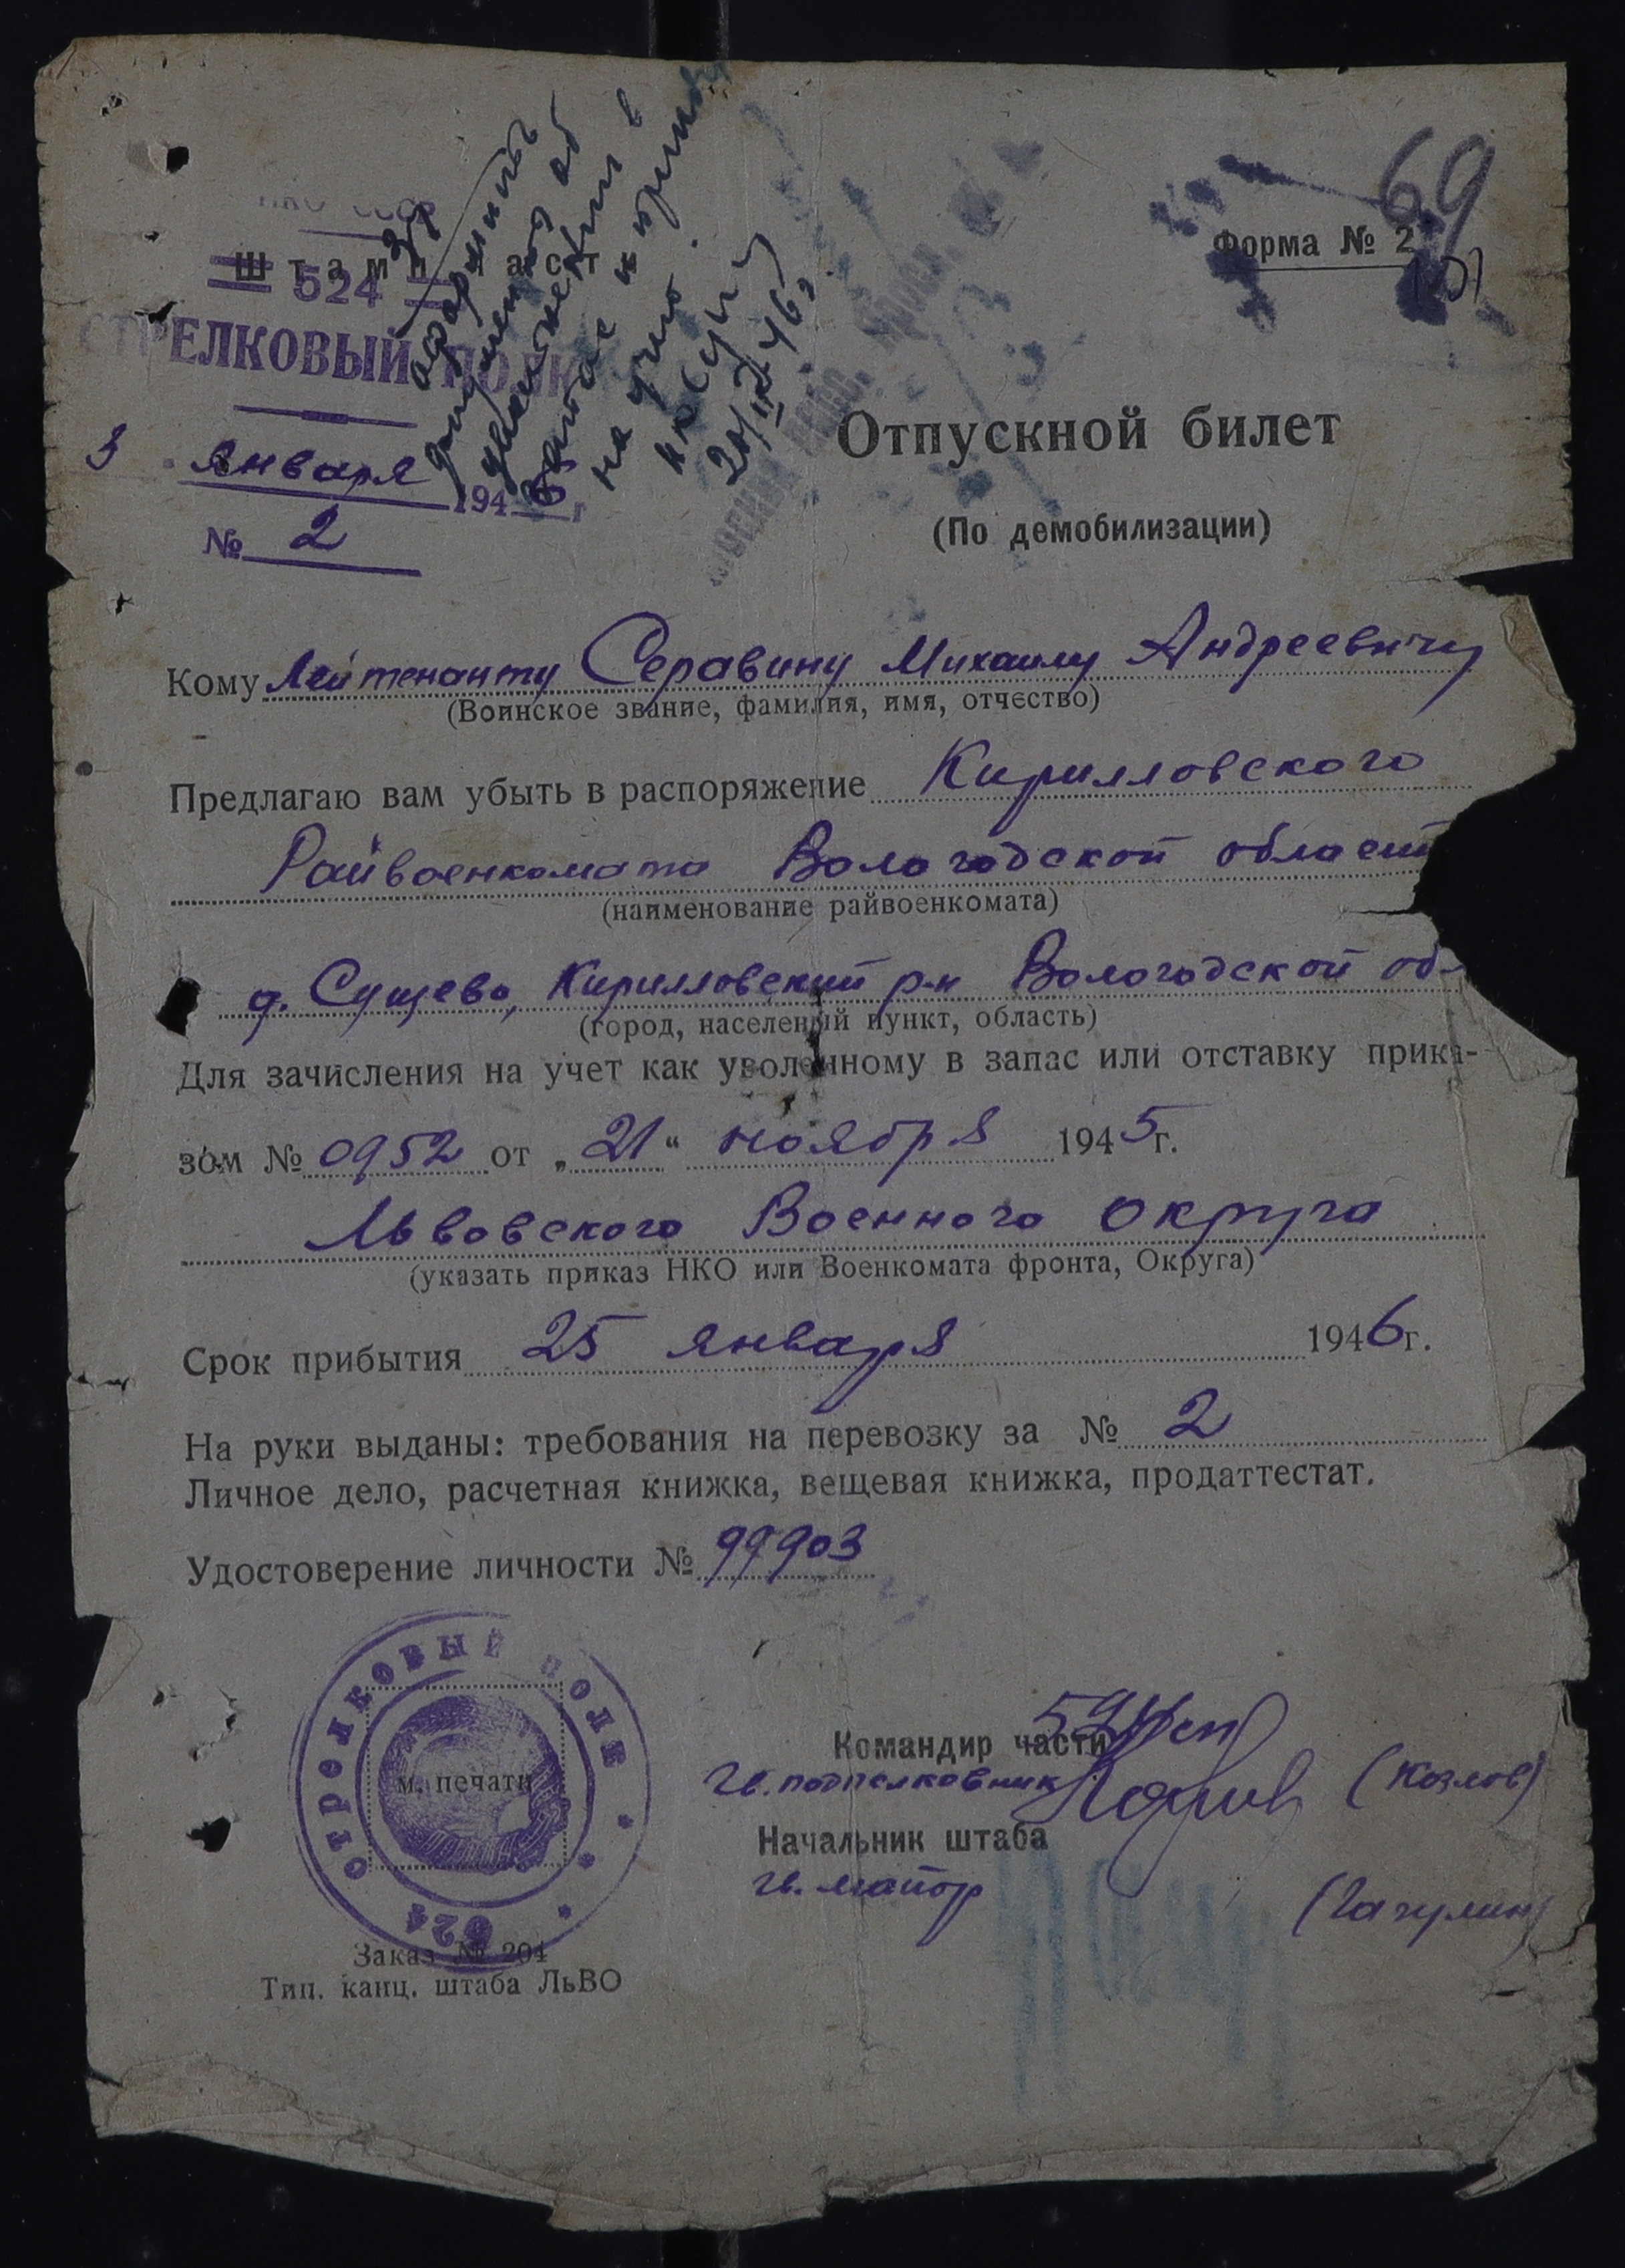 69
Форма № 2
НКО СССР
Штамп част
524
СТРЕЛКОВЫЙ ПОЛК
3 января 1946 г
№ 2
оформить
документ об
увольнении в
запас и принять
на учет.
20/III 46
Отпускной билет
(По демобилизации)
Кому Лейтенанту Серавину Михаилу Андреевичу
(Воинское звание, фамилия, имя, отчество)
Предлагаю вам убыть в распоряжение Кирилловского
Райвоенкомата Вологодской област
(наименование райвоенкомата)
д. Сущево, Кирилловский р-н Вологодской об
(город, населенный пункт, область)
Для зачисления на учет как уволенному в запас или отставку прика-
зом № 0952 от „21“ ноября 1945 г.
Львовского Военного округа
(указать приказ НКО или Военкомата фронта, Округа)
Срок прибытия 25 января 1946 г.
На руки выданы: требования на перевозку за № 2
Личное дело, расчетная книжка, вещевая книжка, продаттестат.
Удостоверение личности № 99903
СТРЕЛКОВЫЙ ПОЛК
524
м. печати
Командир части 524 сп
гв. подполковник (Козлов)
Начальник штаба
гв. майор
Заказ № 204
Тип. канц. штаба ЛьВО